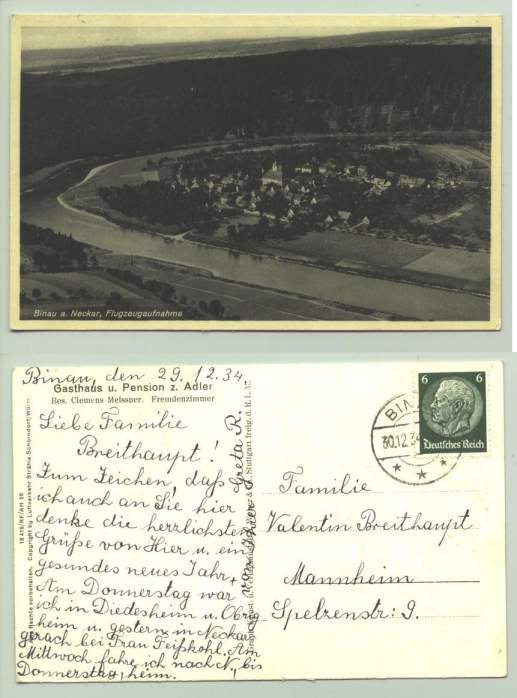 Binau a. Neckar, Flugzeugaufnahme
Binau, den 29. 12. 34
Gasthaus u. Pension z. Adler
Bes. Clemens Meissner. Fremdenzimmer
Liebe Familie
Breithaupt!
Zum Zeichen, daß
ich auch an Sie hier
denke die herzlichsten
Grüße von Hier u. ein
gesundes neues Jahr,
Am Donnerstag war
ich in Diedesheim u. Obrig
heim u. gestern in Neckar
gerach bei Frau Feißkohl. Am
Mittwoch fahre ich nach N., bis
Donnerstag, heim.
von Ihrer Greta R.
Copyright by Luftverkehr Strähle Schorndorf/Württ.
6 6
Deutsches Reich
30.12.34
Familie
Valentin Breithaupt
Mannheim
Spelzenstr: 9.